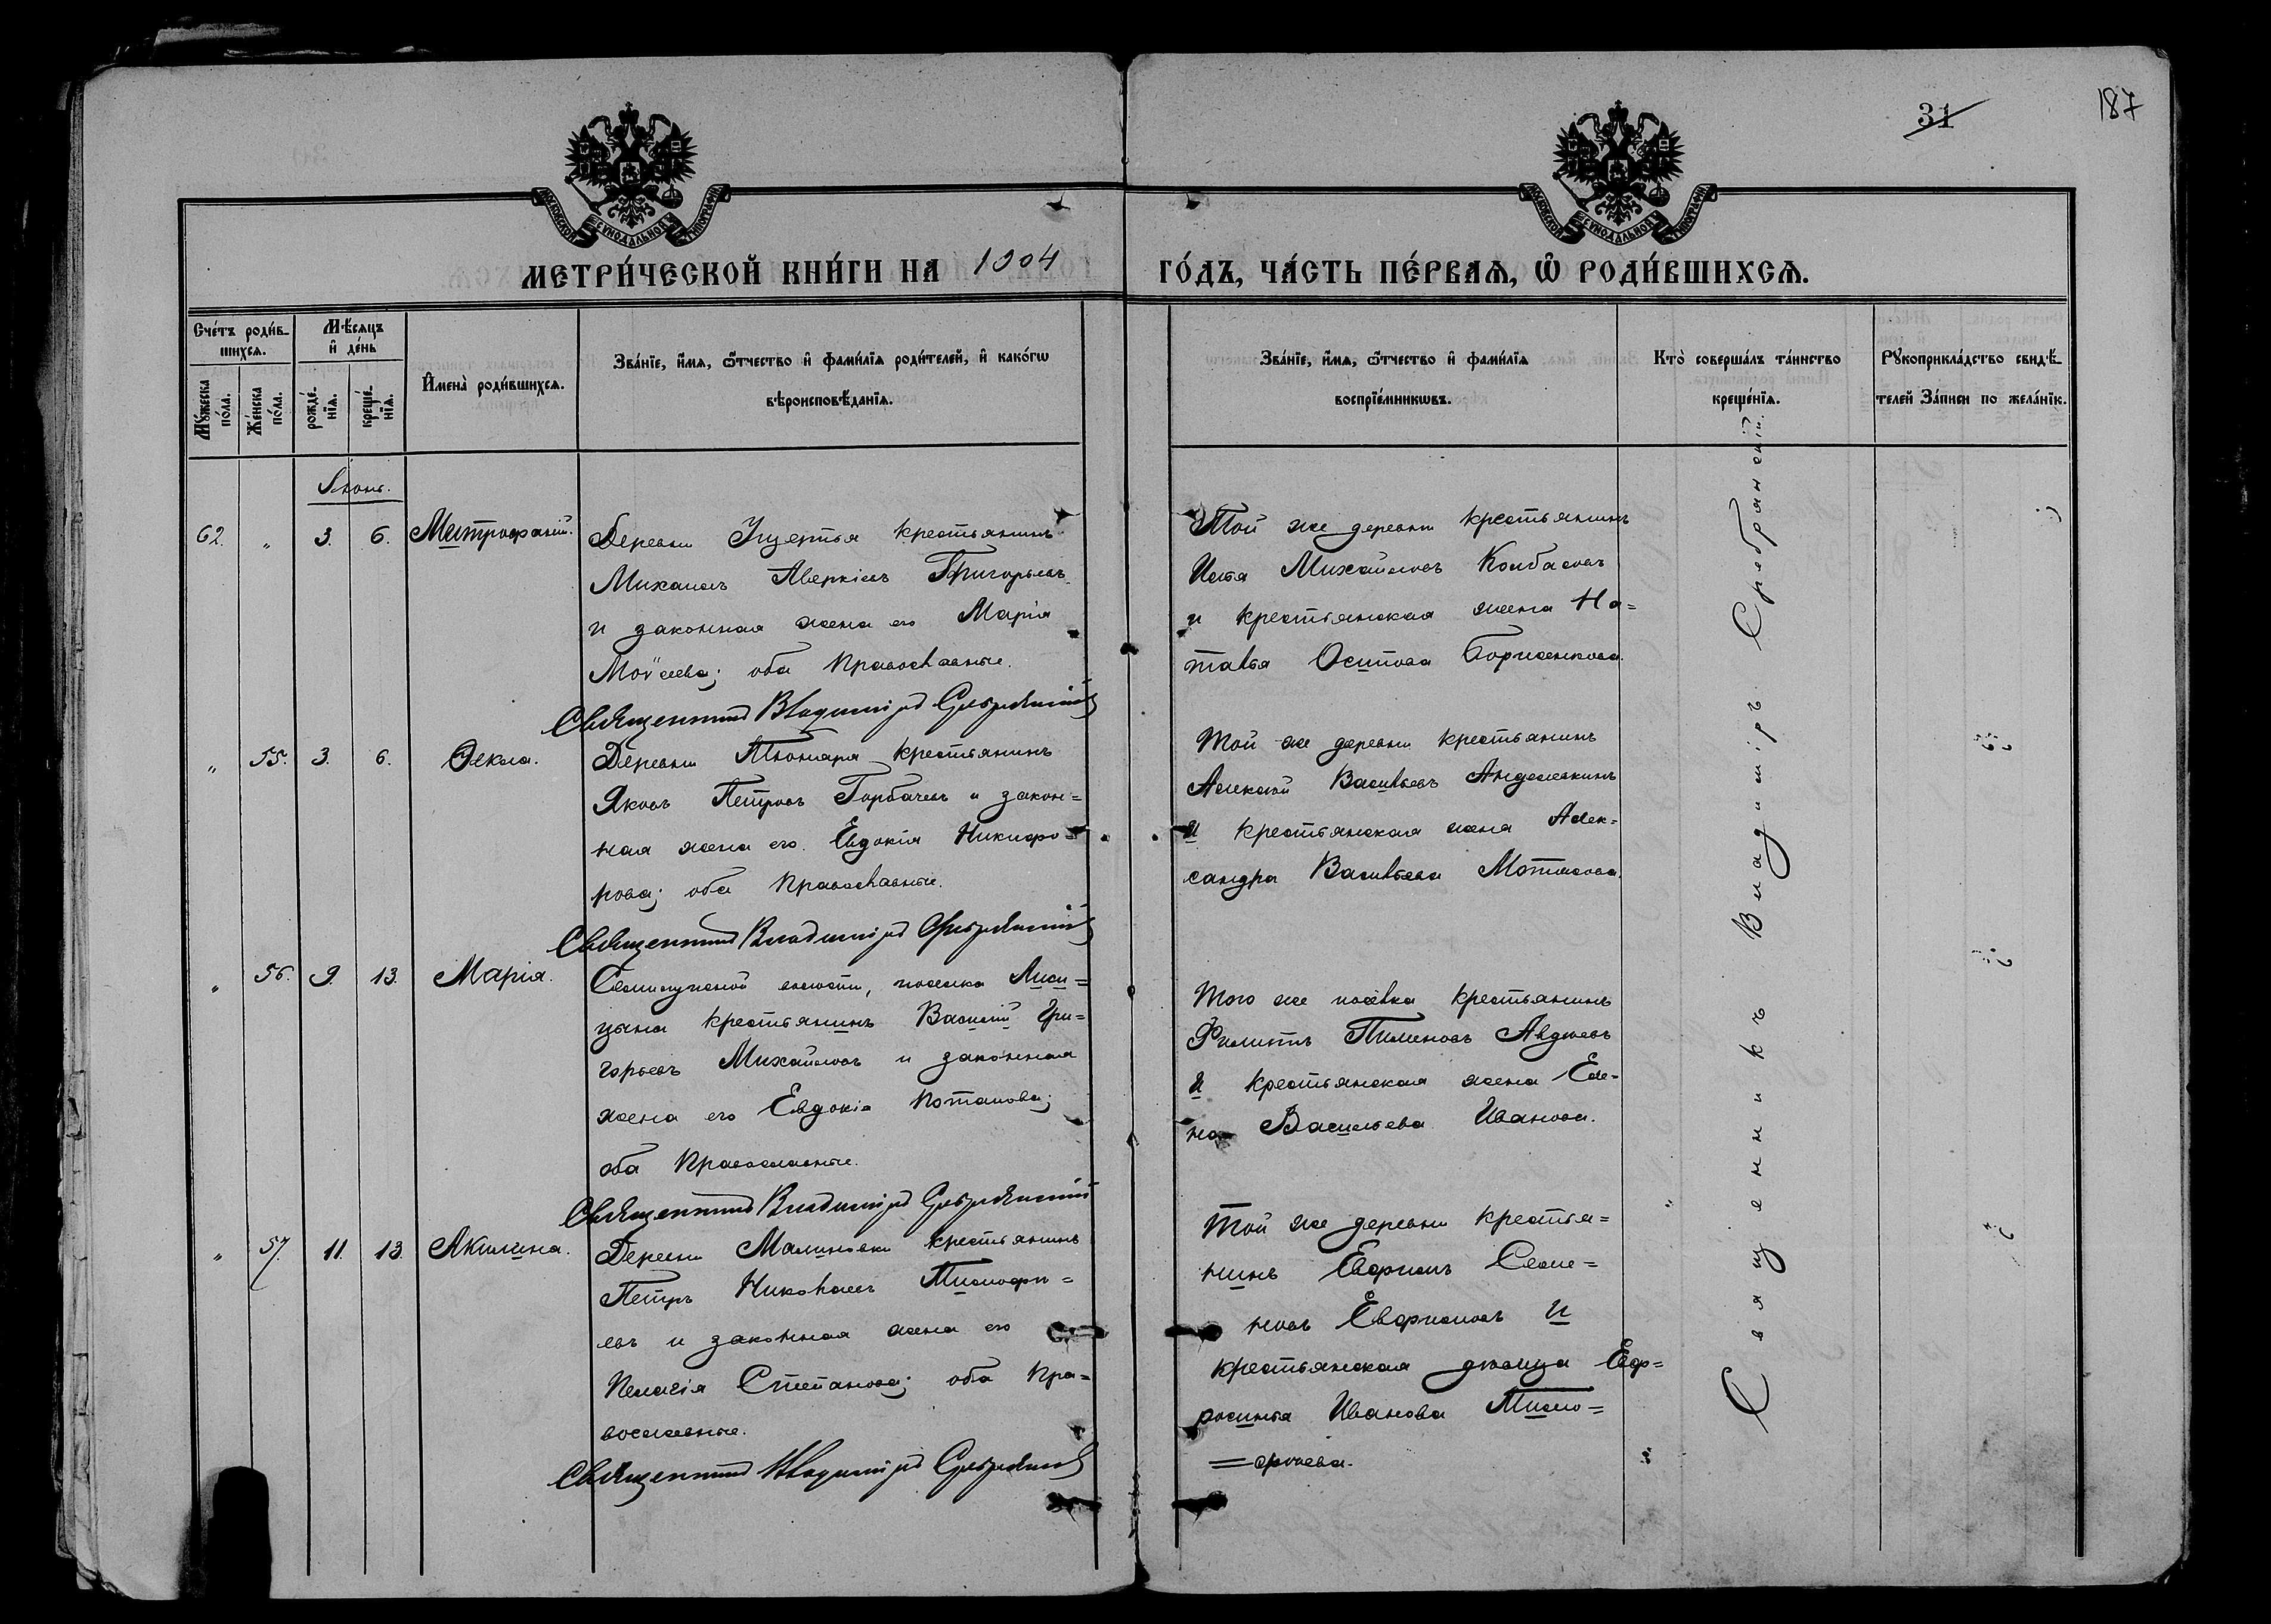 31
187
МОСКОВСКОЙ СѴНОДАЛЬНОЙ ТИПОГРАФІИ
МОСКОВСКОЙ СѴНОДАЛЬНОЙ ТИПОГРАФІИ
МЕТРИ́ЧЕСКОЙ КНИ́ГИ НА 1904
ГО́ДЪ, ЧА́СТЬ ПЕ́РВАѦ, Ѡ҆ РОДИ́ВШИХСѦ.
Сче́тъ роди́в-
шихсѧ.
Мꙋ́жеска по́ла.
Же́нска по́ла.
Мѣ́сѧцъ
и҆ де́нь
рожде́-
нїѧ.
креще́-
нїѧ.
И҆мена̀ роди́вшихсѧ.
Зва́нїе, и҆́мѧ, ѻ҆́тчество и҆ фами́лїѧ роди́телей, и҆ како́гѡ
вѣроисповѣ́данїѧ.
Зва́нїе, и҆́мѧ, ѻ҆́тчество и҆ фами́лїѧ
воспрїе́мникѡвъ.
Кто̀ соверша́лъ та́инство
креще́нїѧ.
Рꙋкоприкла́дство свидѣ́-
телей За́писи по жела́нїю.
Іюнь.
62. " 3. 6. Митрофаній.
Деревни Ущертья крестьянинъ
Михаилъ Аверкіевъ Григорьевъ
и законная жена его Марія
Моѵсеева; оба православные.
Священникъ Владиміръ Сребрянскій
Той же деревни крестьянинъ
Илья Михайловъ Колбасовъ
и крестьянская жена На=
талья Осипова Борисенкова.
" 55. 3. 6. Ѳекла.
Деревни крестьянинъ
Яковъ Петровъ Горбачевъ и закон=
ная жена его Евдокія Никифо=
рова; оба православные.
Священникъ Владиміръ Сребрянскій
Той же деревни крестьянинъ
Алексѣй Васильевъ
и крестьянская жена Алек=
сандра Васильева
" 56. 9. 13. Марія.
волости, поселка Лиси=
цына крестьянинъ Василій Гри=
горьевъ Михайловъ и законная
жена его Евдокія Потапова;
оба православные.
Священникъ Владиміръ Сребрянскій
Того же посёлка крестьянинъ
Филиппъ Пименовъ Авдѣевъ
и крестьянская жена Еле=
на Васильева Иванова.
" 57. 11. 13. Акилина.
Деревни Малиновки крестьянинъ
Петръ Николаевъ Тимофѣ=
евъ и законная жена его
Пелагія Степанова; оба пра=
вославные.
Священникъ Владиміръ Сребрянскій
Той же деревни крестья=
нинъ Ефимъ Семе=
новъ и
крестьянская дѣвица Евф=
росинья Иванова Тимо=
=фѣева.
Священникъ Владиміръ Сребрянскій.